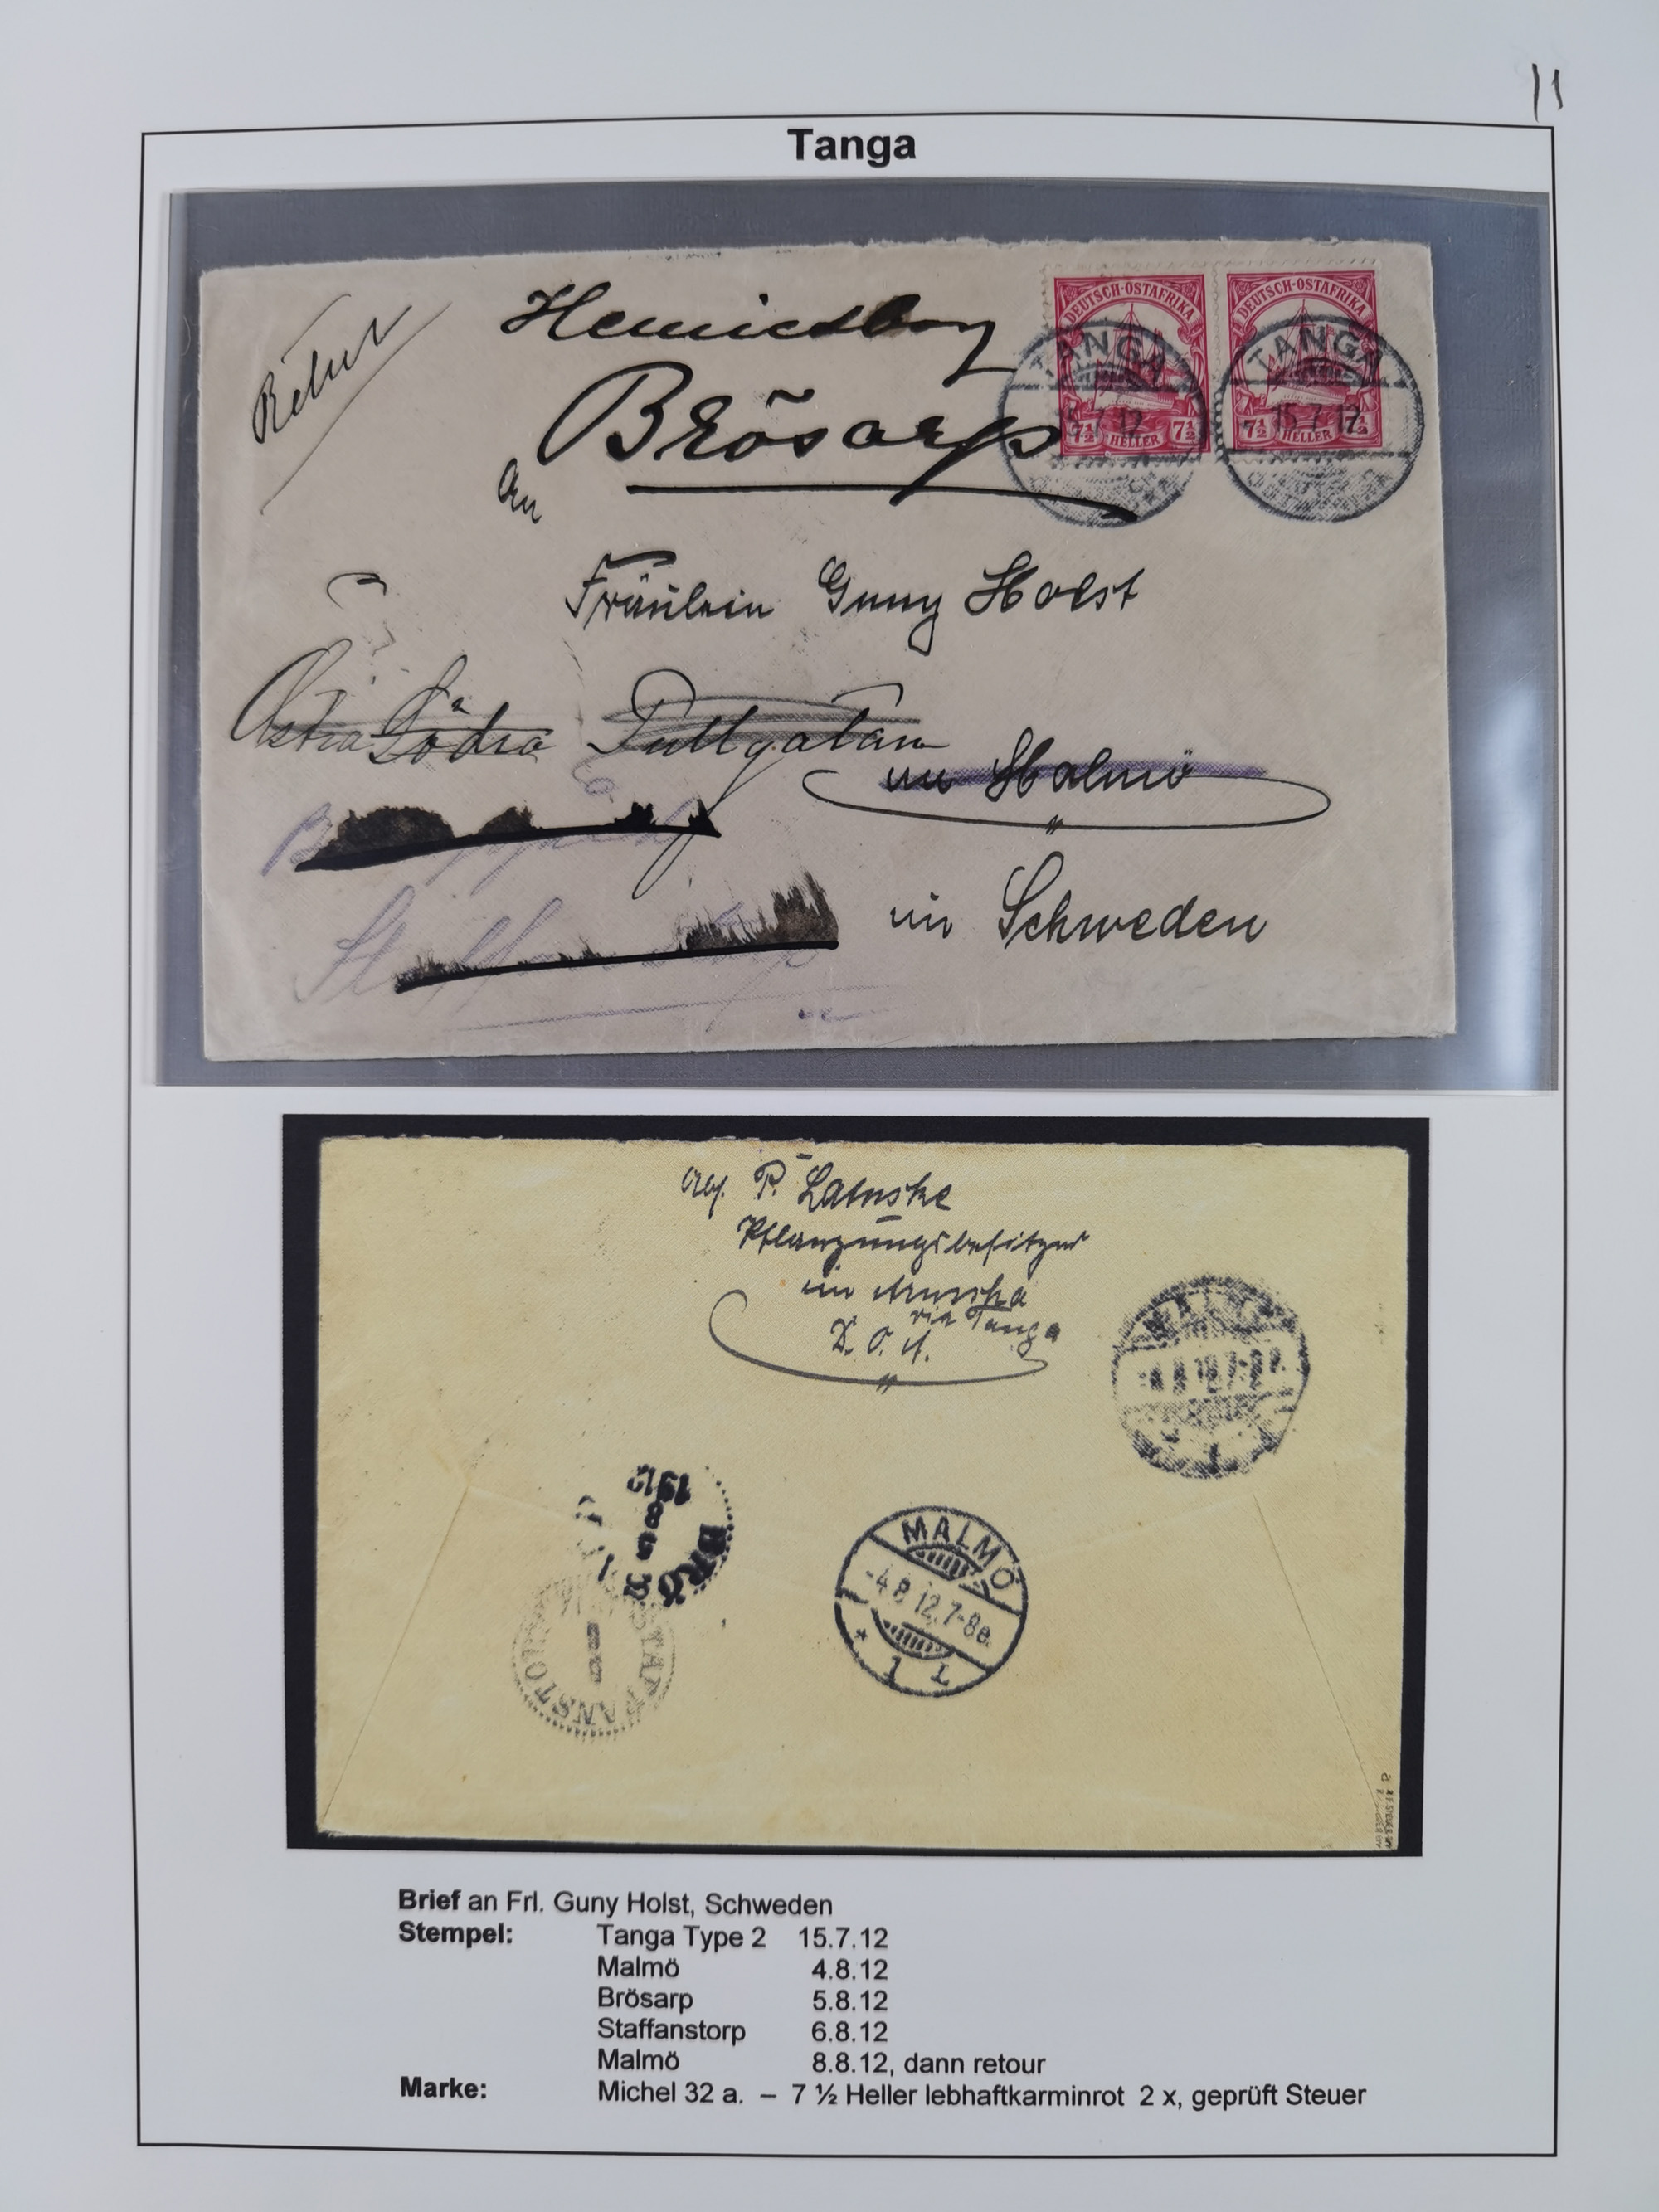 11
Tanga
Retur
Brösarp
An
DEUTSCH-OSTAFRIKA
7½ HELLER 7½
TANGA
15.7.12
DEUTSCH-OSTAFRIKA
7½ HELLER 7½
TANGA
15.7.12
Fräulein Guny Holst
Östra Södra Tullgatan
in Malmö
in Schweden
Abs. P. Latuske
Pflanzungsbesitzer
in Aruscha
via Tanga
D. O. A.
BRÖ
8 5
1912
STAFFANSTO
MALMÖ
-4 8 12.7-8e.
* 1 L
Brief an Frl. Guny Holst, Schweden
Stempel: Tanga Type 2 15.7.12
Malmö 4.8.12
Brösarp 5.8.12
Staffanstorp 6.8.12
Malmö 8.8.12, dann retour
Marke: Michel 32 a. – 7 ½ Heller lebhaftkarminrot 2 x, geprüft Steuer